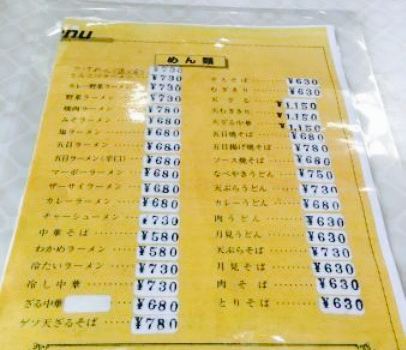 enu
めん類
¥730
とんこつラーメン ¥730
カレー野菜ラーメン ¥730
野菜ラーメン ¥730
焼肉ラーメン ¥780
みそラーメン ¥680
塩ラーメン ¥680
五目ラーメン ¥680
五目ラーメン(辛口) ¥680
マーボーラーメン ¥680
ザーサイラーメン ¥680
カレーラーメン ¥680
チャーシューメン ¥730
中華そば ¥580
わかめラーメン ¥580
冷たいラーメン ¥730
冷し中華 ¥730
ざる中華 ¥680
ゲソ天ざるそば ¥780
¥630
むぎきり ¥630
天ざる ¥1,150
天むぎきり ¥1,150
天ざる中華 ¥1,150
五目焼そば ¥680
五目揚げ焼そば ¥780
ソース焼そば ¥680
なべやきうどん ¥750
天ぷらうどん ¥730
カレーうどん ¥680
肉うどん ¥630
月見うどん ¥630
天ぷらそば ¥730
月見そば ¥630
肉そば ¥630
とりそば ¥630